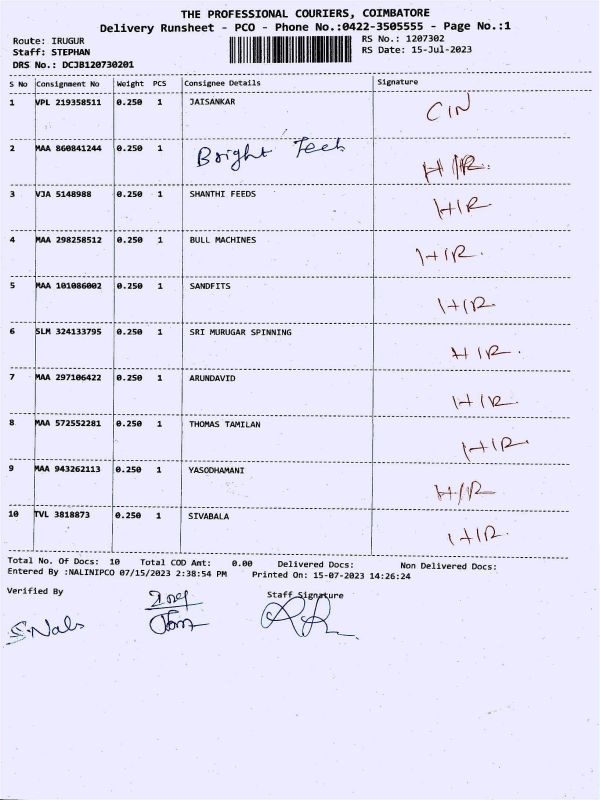 THE PROFESSIONAL COURIERS, COIMBATORE
Delivery Runsheet - PCO - Phone No.:0422-3505555 - Page No.:1
Route: IRUGUR RS No.: 1207302
Staff: STEPHAN RS Date: 15-Jul-2023
DRS No.: DCJB120730201
S No Consignment No Weight PCS Consignee Details Signature
1 VPL 219358511 0.250 1 JAISANKAR CIN
2 MAA 860841244 0.250 1 Bright Tech H/R.
3 VJA 5148988 0.250 1 SHANTHI FEEDS H/R
4 MAA 298258512 0.250 1 BULL MACHINES H/R.
5 MAA 101086002 0.250 1 SANDFITS H/R.
6 SLM 324133795 0.250 1 SRI MURUGAR SPINNING H/R.
7 MAA 297106422 0.250 1 ARUNDAVID H/R.
8 MAA 572552281 0.250 1 THOMAS TAMILAN H/R.
9 MAA 943262113 0.250 1 YASODHAMANI H/R
10 TVL 3818873 0.250 1 SIVABALA H/R.
Total No. Of Docs: 10 Total COD Amt: 0.00 Delivered Docs: Non Delivered Docs:
Entered By :NALINIPCO 07/15/2023 2:38:54 PM Printed On: 15-07-2023 14:26:24
Verified By Staff Signature
S.Nals